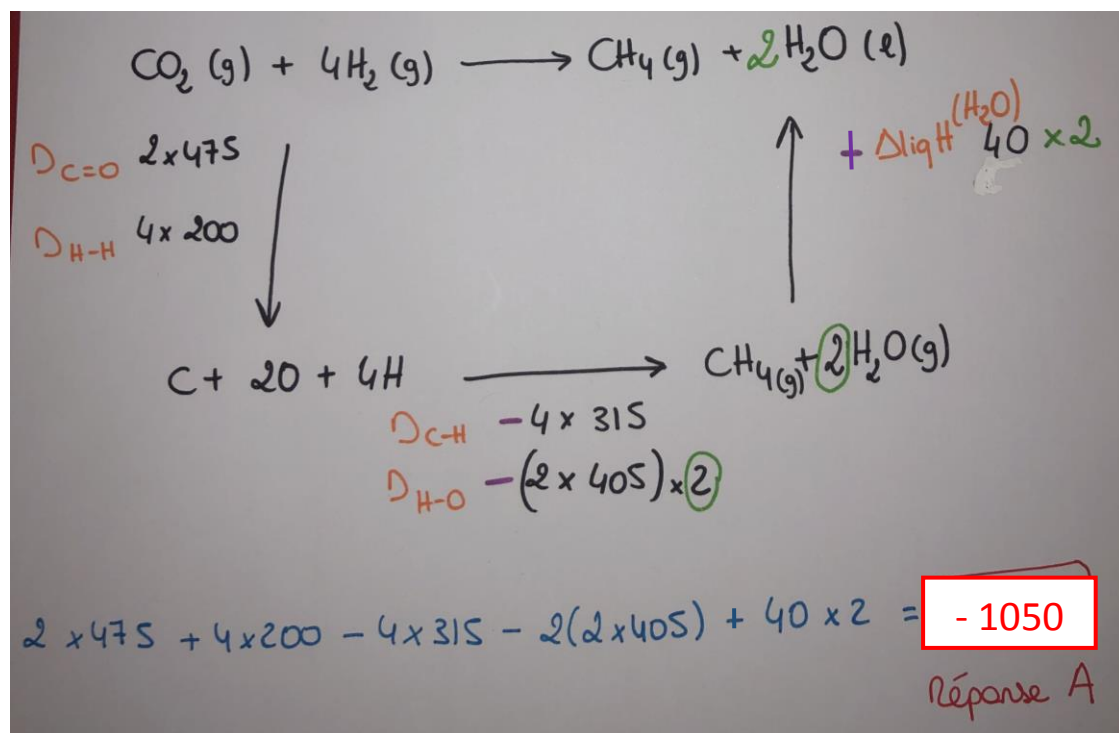 CO₂ (g) + 4H₂ (g) ⟶ CH₄ (g) + 2H₂O (l)
D C=O 2x475
D H-H 4x 200
+ ΔliqH (H₂O) 40 x2
C + 2O + 4H ⟶ CH₄(g) + 2H₂O(g)
D C-H - 4 x 315
D H-O - (2 x 405) x 2
2 x475 + 4x200 - 4x315 - 2(2x405) + 40 x 2 = - 1050
Réponse A